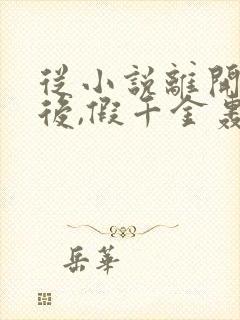 從小說離開
後,假千金轟
岳華